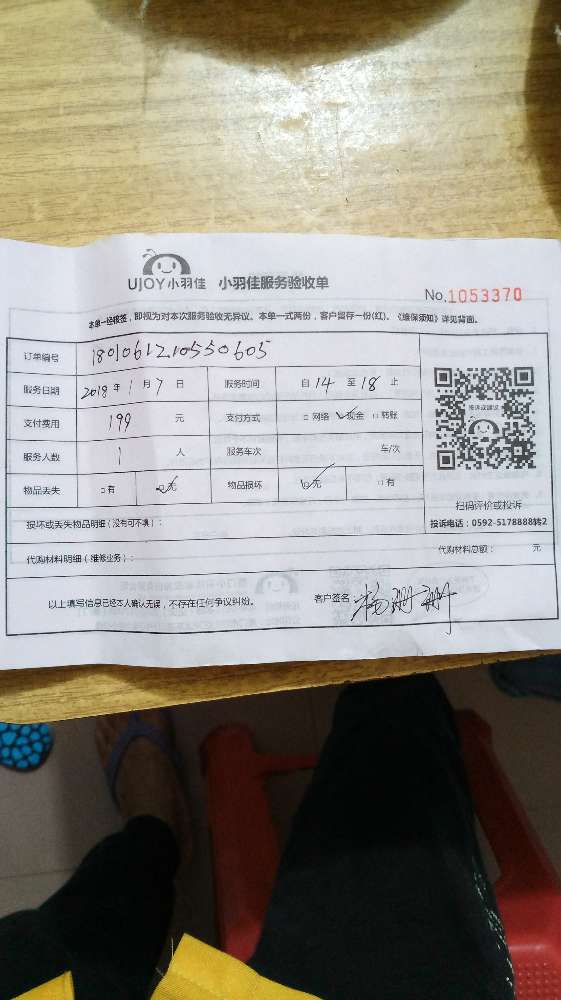 UJOY小羽佳 小羽佳服务验收单
No.1053370
本单一经核签，即视为对本次服务验收无异议。本单一式两份，客户留存一份(红)。《维保须知》详见背面。
订单编号 1801061210550605
服务日期 2018 年 1 月 7 日 服务时间 自 14 至 18 止
支付费用 199 元 支付方式 □ 网络 ✓现金 □ 转账
服务人数 1 人 服务车次 车/次
物品丢失 □有 ☑无 物品损坏 ☑无 □有
投诉或建议
扫码评价或投诉
投诉电话：0592-5178888转2
损坏或丢失物品明细（没有可不填）：
代购材料明细（维修业务）： 代购材料总额： 元
以上填写信息已经本人确认无误，不存在任何争议纠纷。 客户签名 杨珊珊